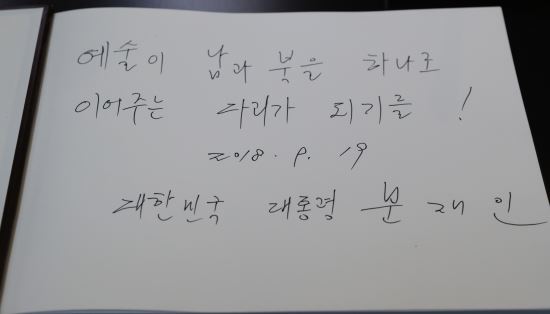 예술이 남과 북을 하나로
이어주는 다리가 되기를!
2018. 9. 19
대한민국 대통령 문재인